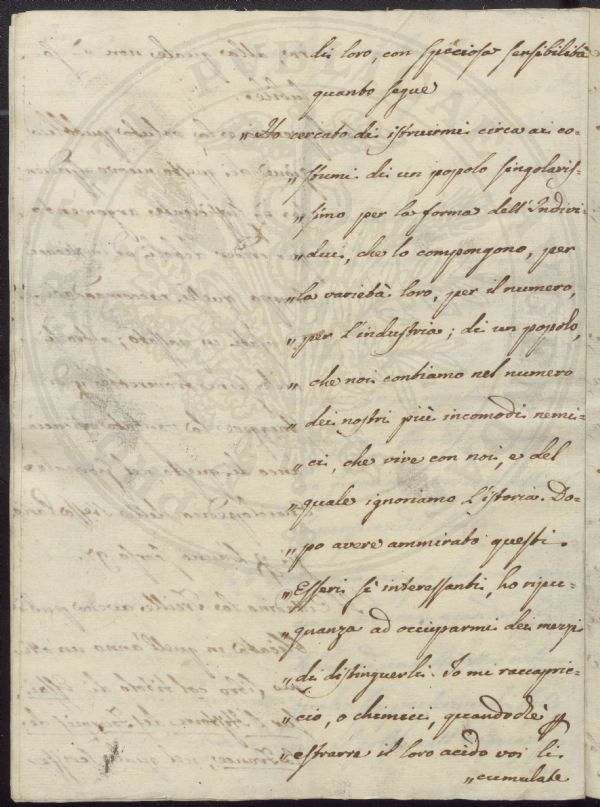 di loro, con speciosa sensibilità
quanto segue
„ Ho cercato di istruirmi circa ai co-
„ stumi di un popolo singolaris-
„ simo per la forma dell'Indivi-
„ dui, che lo compongono, per
„ la varietà loro, per il numero,
„ per l'industria; di un popolo,
„ che noi contiamo nel numero
„ dei nostri più incomodi nemi-
„ ci, che vive con noi, e del
„ quale ignoriamo l'istoria. Do-
„ po avere ammirato questi
„ Esseri sì interessanti, ho ripu-
„ gnanza ad occuparmi dei mezzi
„ di distinguerli. Io mi raccapric-
„ cio, o chimici, quando di
„ estrarre il loro acido voi li
„ cumulate